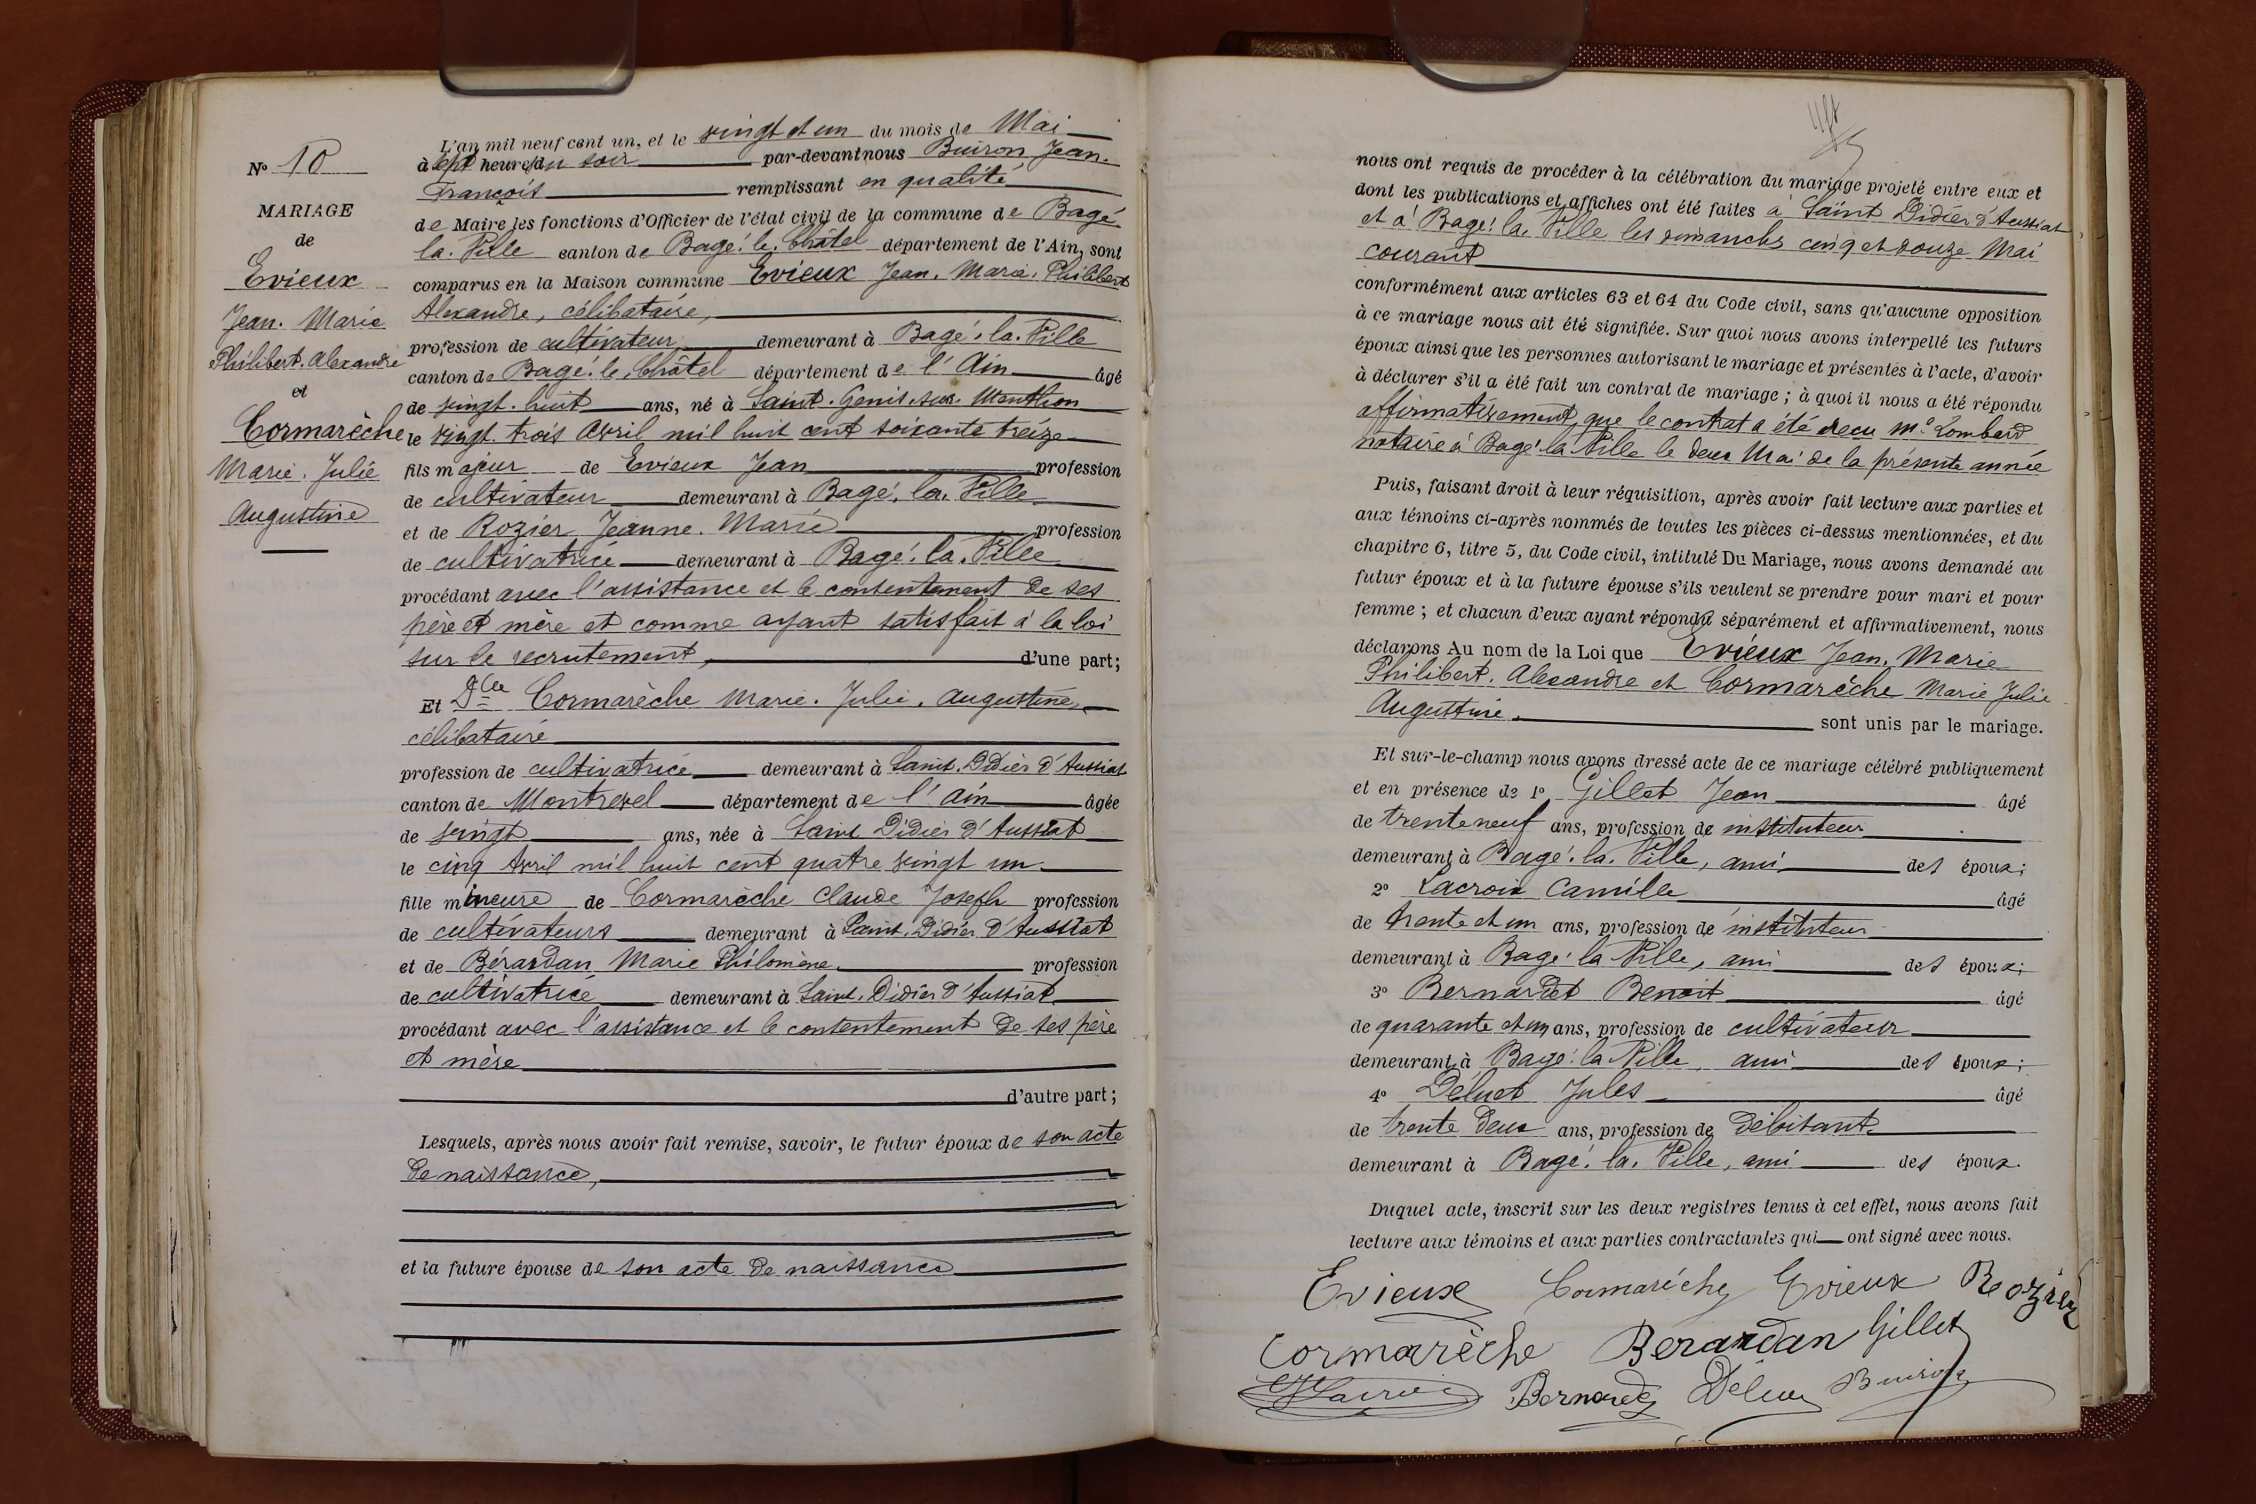 N° 10
MARIAGE
de
Evieux
Jean. Marie
Philibert. Alexandre
et
Cormarèche
Marie. Julie
Augustine
L'an mil neuf cent un, et le vingt et un du mois de Mai
à sept heures du soir par-devant nous Buiron Jean.
François remplissant en qualité
de Maire les fonctions d'Officier de l'état civil de la commune de Bagé
la. Ville canton de Bagé. le. Châtel département de l'Ain, sont
comparus en la Maison commune Evieux Jean. Marie. Philibert
Alexandre, célibataire,
profession de cultivateur demeurant à Bagé. la. Ville
canton de Bagé. le. Châtel département de l'Ain âgé
de vingt. huit ans, né à Saint. Genis. sur. Menthon
le vingt. trois Avril mil huit cent soixante treize
fils majeur de Evieux Jean profession
de cultivateur demeurant à Bagé. la. Ville
et de Rozier Jeanne. Marie profession
de cultivatrice demeurant à Bagé. la. Ville
procédant avec l'assistance et le consentement de ses
père et mère et comme ayant satisfait à la loi
sur le recrutement, d'une part;
Et Dlle Cormarèche Marie. Julie. Augustine,
célibataire
profession de cultivatrice demeurant à Saint. Didier d'Aussiat
canton de Montrevel département de l'Ain âgée
de vingt ans, née à Saint Didier d'Aussiat
le cinq Avril mil huit cent quatre vingt un
fille mineure de Cormarèche Claude Joseph profession
de cultivateurs demeurant à Saint. Didier d'Aussiat
et de Bérardan Marie Philomène profession
de cultivatrice demeurant à Saint. Didier d'Aussiat
procédant avec l'assistance et le consentement de ses père
et mère
d'autre part;
Lesquels, après nous avoir fait remise, savoir, le futur époux de son acte
de naissance,
et la future épouse de son acte de naissance
nous ont requis de procéder à la célébration du mariage projeté entre eux et
dont les publications et affiches ont été faites à Saint Didier d'Aussiat
et à Bagé. la. Ville les dimanches cinq et douze Mai
courant
conformément aux articles 63 et 64 du Code civil, sans qu'aucune opposition
à ce mariage nous ait été signifiée. Sur quoi nous avons interpellé les futurs
époux ainsi que les personnes autorisant le mariage et présentes à l'acte, d'avoir
à déclarer s'il a été fait un contrat de mariage; à quoi il nous a été répondu
affirmativement, que le contrat a été recu Me Lombard
notaire à Bagé. la Ville le deux Mai de la présente année
Puis, faisant droit à leur réquisition, après avoir fait lecture aux parties et
aux témoins ci-après nommés de toutes les pièces ci-dessus mentionnées, et du
chapitre 6, titre 5, du Code civil, intitulé Du Mariage, nous avons demandé au
futur époux et à la future épouse s'ils veulent se prendre pour mari et pour
femme; et chacun d'eux ayant répondu séparément et affirmativement, nous
déclarons Au nom de la Loi que Evieux Jean. Marie
Philibert. Alexandre et Cormarèche Marie Julie
Augustine. sont unis par le mariage.
Et sur-le-champ nous avons dressé acte de ce mariage célébré publiquement
et en présence de 1° Gillet Jean âgé
de trente neuf ans, profession de instituteur
demeurant à Bagé. la. Ville, ami des époux;
2° Lacroix Camille âgé
de trente et un ans, profession de instituteur
demeurant à Bagé. la Ville, ami des époux;
3° Bernardet Benoit âgé
de quarante et un ans, profession de cultivateur
demeurant à Bagé. la Ville ami des époux;
4° Déluet Jules âgé
de trente deux ans, profession de débitant
demeurant à Bagé. la. Ville, ami des époux.
Duquel acte, inscrit sur les deux registres tenus à cet effet, nous avons fait
lecture aux témoins et aux parties contractantes qui ont signé avec nous.
Evieux Cormarèche Evieux Rozier
Cormarèche Berardan Gillet
Buiron